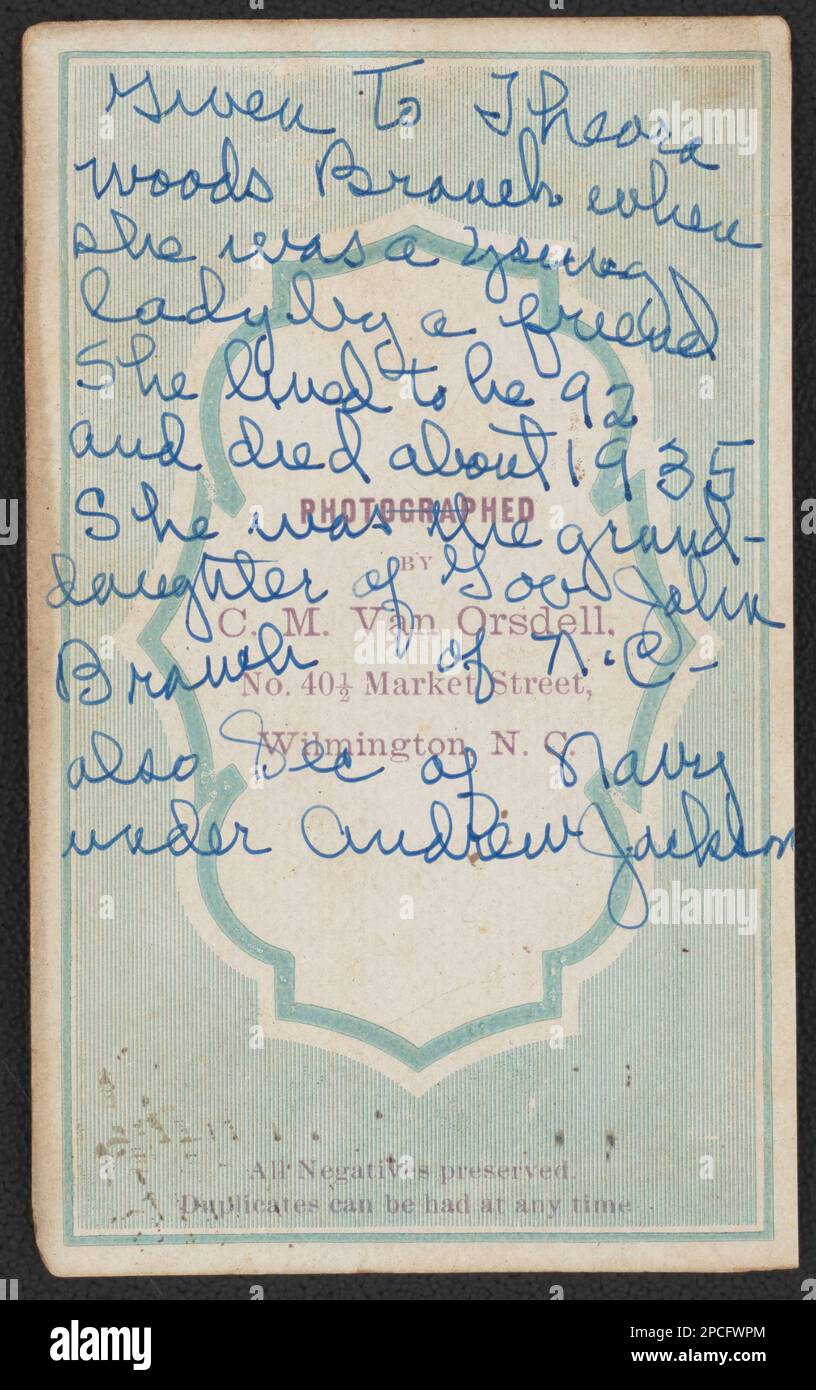 Given To Theora
woods Branch when
she was a young
lady by a friend
She lived to be 92
and died about 1935
She was the grand-
daughter of Gov John
Branch of N.C-
also Sec of Navy
under Andrew Jackson
PHOTOGRAPHED
BY
C. M. Van Orsdell,
No. 40½ Market Street,
Wilmington, N. C.
All Negatives preserved.
Duplicates can be had at any time
alamy
alamy
alamy
Image ID: 2PCFWPM
www.alamy.com